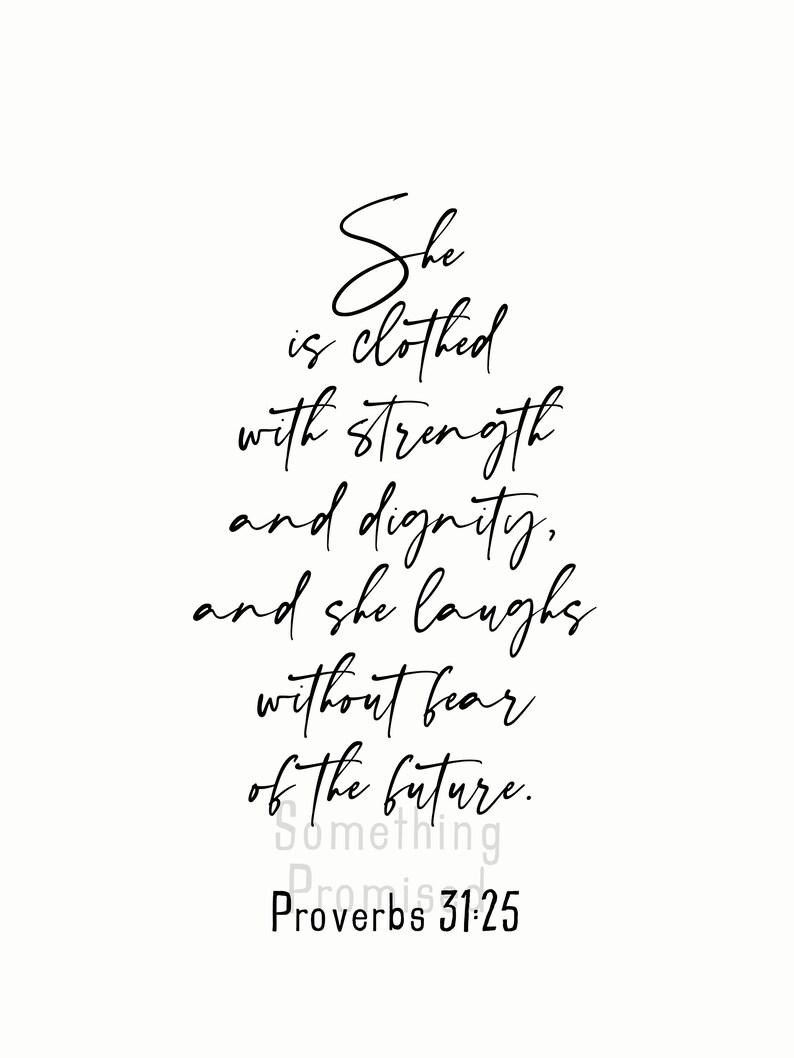 She
is clothed
with strength
and dignity,
and she laughs
without fear
of the future.
Something
Promised
Proverbs 31:25